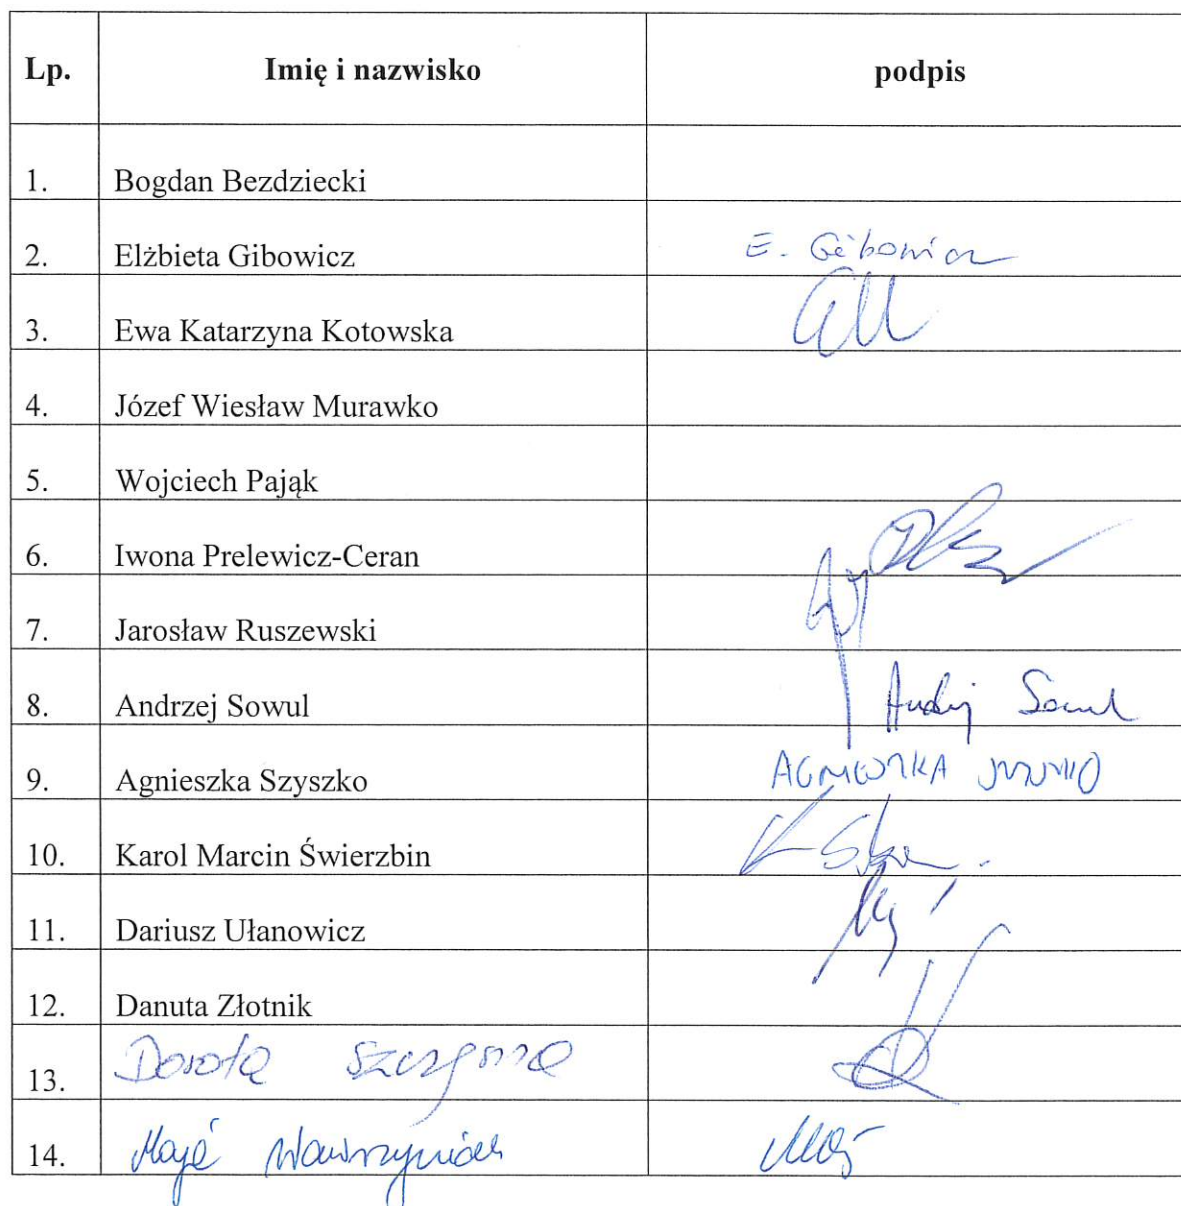 Lp. Imię i nazwisko podpis
1. Bogdan Bezdziecki
2. Elżbieta Gibowicz E. Gibowicz
3. Ewa Katarzyna Kotowska
4. Józef Wiesław Murawko
5. Wojciech Pająk
6. Iwona Prelewicz-Ceran
7. Jarosław Ruszewski
8. Andrzej Sowul Andrzej Sowul
9. Agnieszka Szyszko AGNIESZKA SZYSZKO
10. Karol Marcin Świerzbin
11. Dariusz Ułanowicz
12. Danuta Złotnik
13. Dorota
14. Maja Wawrzyniak